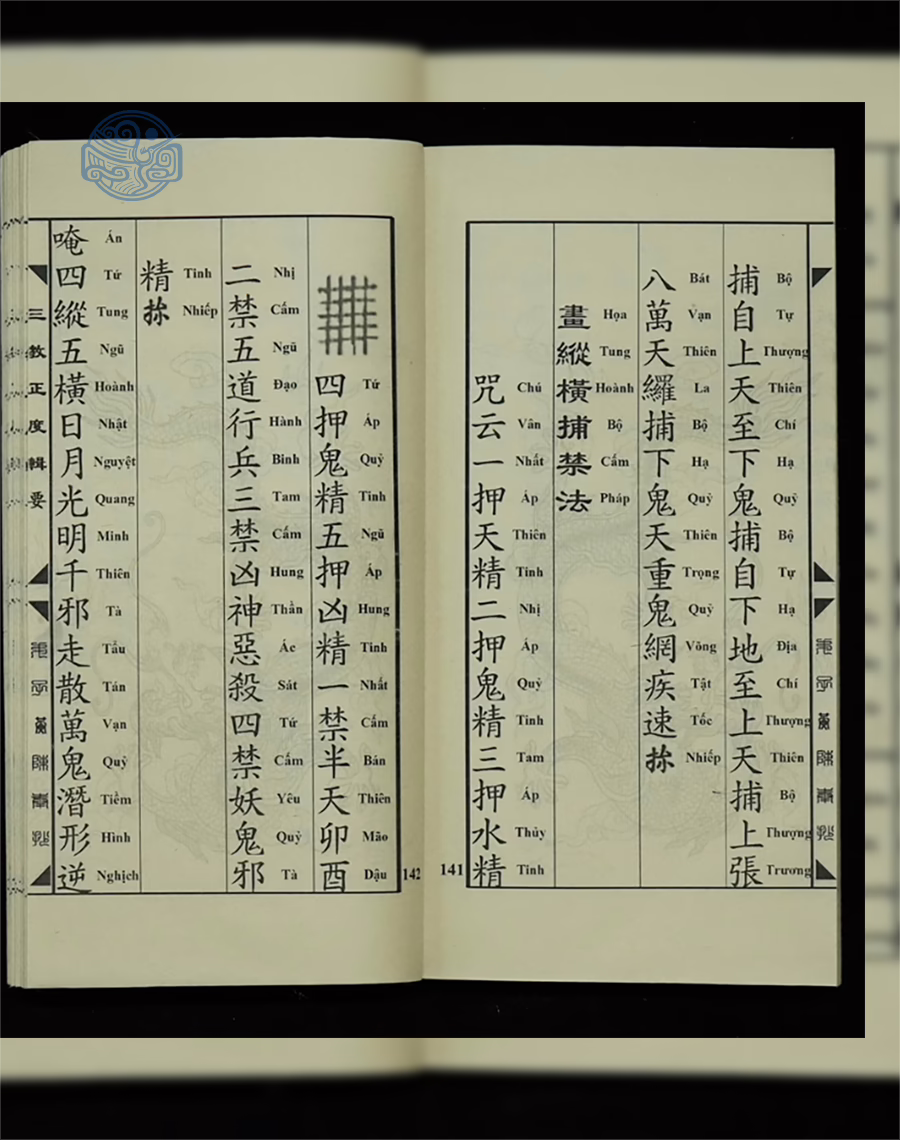 捕自上天至下鬼捕自下地至上天捕上張
Bộ Tự Thượng Thiên Chí Hạ Quỷ Bộ Tự Hạ Địa Chí Thượng Thiên Bộ Thượng Trương
八萬天纙捕下鬼天重鬼網疾速
Bát Vạn Thiên La Bộ Hạ Quỷ Thiên Trọng Quỷ Võng Tật Tốc Nhiếp
畫縱橫捕禁法
Họa Tung Hoành Bộ Cấm Pháp
咒云一押天精二押鬼精三押水精
Chú Vân Nhất Áp Thiên Tinh Nhị Áp Quỷ Tinh Tam Áp Thủy Tinh
141
四押鬼精五押凶精一禁半天卯酉
Tứ Áp Quỷ Tinh Ngũ Áp Hung Tinh Nhất Cấm Bán Thiên Mão Dậu
二禁五道行兵三禁凶神惡殺四禁妖鬼邪
Nhị Cấm Ngũ Đạo Hành Binh Tam Cấm Hung Thần Ác Sát Tứ Cấm Yêu Quỷ Tà
精
Tinh Nhiếp
唵四縱五橫日月光明千邪走散萬鬼潛形逆
Án Tứ Tung Ngũ Hoành Nhật Nguyệt Quang Minh Thiên Tà Tẩu Tán Vạn Quỷ Tiềm Hình Nghịch
三教正度輯要
142